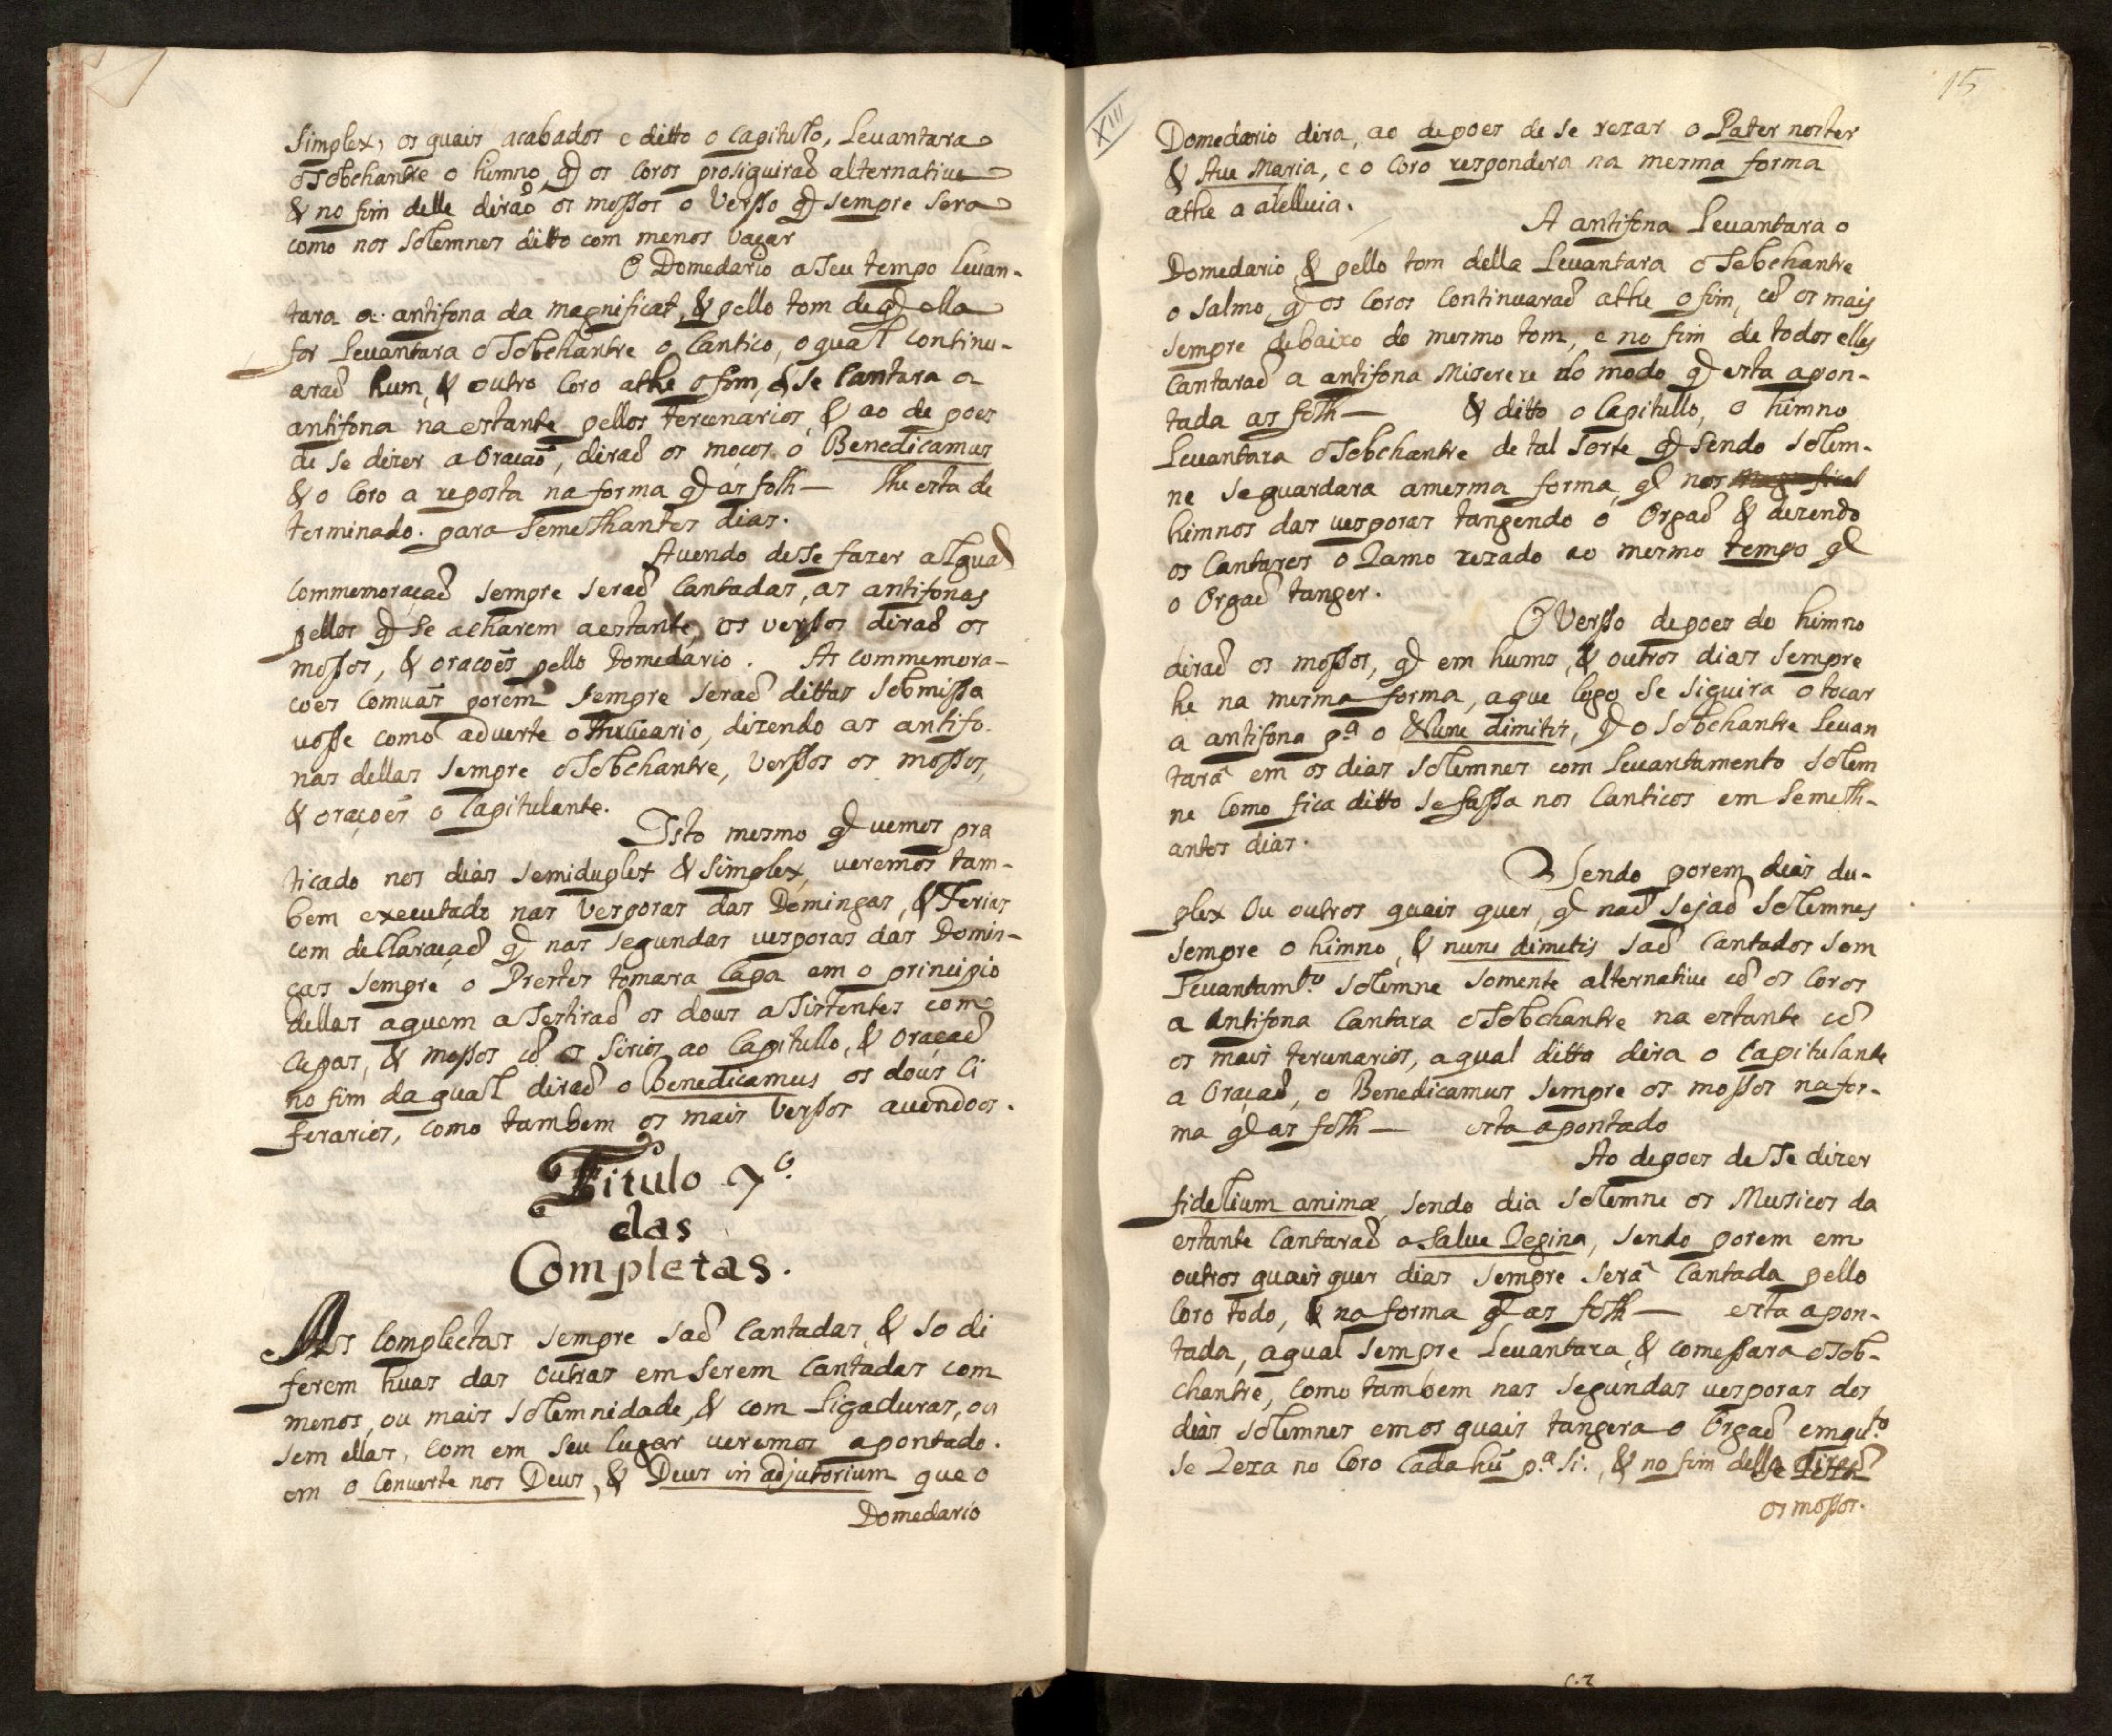 simplex, os quais acabados e ditto o capitulo, Levantara
o Sobchantre o himno, q̃ os coros prosiguiraõ alternative
& no fim delle diraõ os mossos o versso q̃ sempre sera
como nos solemnes ditto com menos vagar
O Domedario a seu tempo levan-
tara a antifona da magnificat, & pello tom de q̃ ella
for Levantara o Sobchantre o Cantico, o qual continu-
araõ hum, & outro Coro athe o fim, & se Cantara a
antifona na estante pellos tercenarios, & ao de poes
de se dizer a Oraçaõ, diraõ os moços o Benedicamus
& o Coro a reposta na forma q̃ as folh— lhe esta de
terminado para semelhantes dias.
Avendo de se fazer algũa
Commemoraçaõ sempre seraõ Cantadas, as antifonas
pellos q̃ se acharem a estante, os verssos diraõ os
mossos, & oracoẽs pello Domedario. As commemora-
coes comuãs porem sempre seraõ dittas sobmissa
vosse como adverte o , dizendo as antifo.
nas dellas sempre o Sobchantre, verssos os mossos,
& oraçoẽs o Capitulante.
Isto mesmo q̃ vemos pra
ticado nos dias semiduplex & simplex, veremos tam-
bem executado nas vesporas das Domingas, & Ferias
com deClaraçaõ q̃ nas segundas vesporas das Domin-
gas sempre o Prestes tomara Capa em o principio
dellas a quem assestiraõ os dous assistentes com
Capas, & mossos cõ os sirios, ao Capitullo, & Oraçaõ
no fim da qual diraõ o Benedicamus os dous Ci
ferarios, como tambem os mais verssos avendoos.
Titulo 7º.
das
Completas.
As Complectas sempre saõ Cantadas, & so di
ferem huas das outras em serem Cantadas com
menos, ou mais solemnidade, & com ligaduras, ou
sem ellas, com em seu lugar veremos apontado.
em o Converte nos Deus, & Deus in adjutorium que o
Domedario
15
XIII
Domedario dira, ao depoes de se rezar o Pater noster
& Ave Maria, e o Coro respondera na mesma forma
athe a alelluia.
A antifona Levantara o
Domedario, & pello tom della Levantara o Sobchantre
o salmo, q̃ os Coros Continuaraõ athe o fim, cõ os mais
sempre debaixo do mesmo tom, e no fim de todos elles
Cantaraõ a antifona Miserere do modo q̃ esta apon-
tada as folh— & ditto o Capitullo, o himno
Levantara o Sobchantre de tal sorte q̃ sendo solem-
ne se guardara a mesma forma, q̃ nos Magnificat
himnos das vesporas tangendo o Orgaõ & dizendo
os Cantores o Ramo rezado ao mesmo tempo q̃
o Orgaõ tanger.
O Versso depoes do himno
diraõ os mossos, q̃ em humo, & outros dias sempre
he na mesma forma, a que logo se siguira o tocar
a antifona pª o Nunc dimitis, q̃ o Sobchantre Levan
tarâ em os dias solemnes com Levantamento solem
ne Como fica ditto se fassa nos Canticos em semelh-
antes dias.
Sendo porem dias du-
plex ou outros quais quer, q̃ naõ sejaõ solemnes
sempre o himno, & nunc dimitis saõ Cantados sem
Levantam.to solemne somente alternative cõ os Coros
a Antifona Cantara o Sobchantre na estante cõ
os mais tercenarios, a qual ditta dira o Capitulante
a Oraçaõ, o Benedicamus sempre os mossos na for-
ma q̃ as folh— esta apontado
Ao depoes de se dizer
fidelium animæ, sendo dia solemne os Musicos da
estante Cantaraõ a Salve Regina, sendo porem em
outros quais quer dias sempre serâ Cantada pello
Coro todo, & na forma q̃ as folh— esta apon-
tada, a qual sempre Levantara & comessara o Sob-
chantre, como tambem nas segundas vesporas dos
dias solemnes em os quais tangera o Orgaõ emqu.to
se Reza no Coro cada hũ pª si. & no fim della diraõ
os mossos.